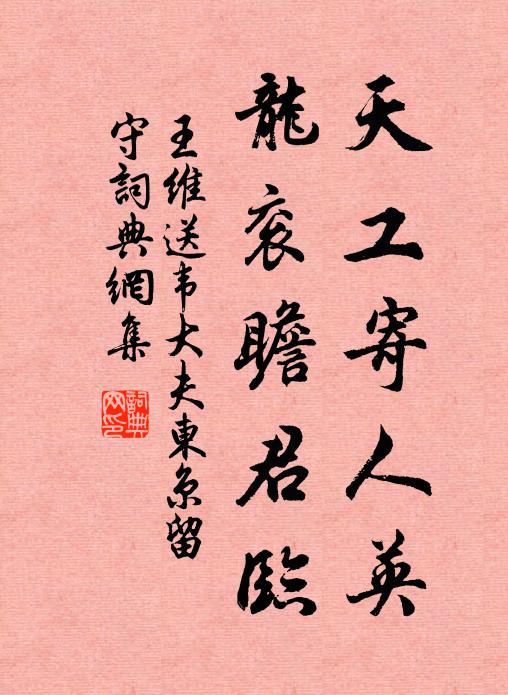 天工寄人英
龍衮瞻君臨
王維送韦大夫東京留
守詞典網集
詞典
网印